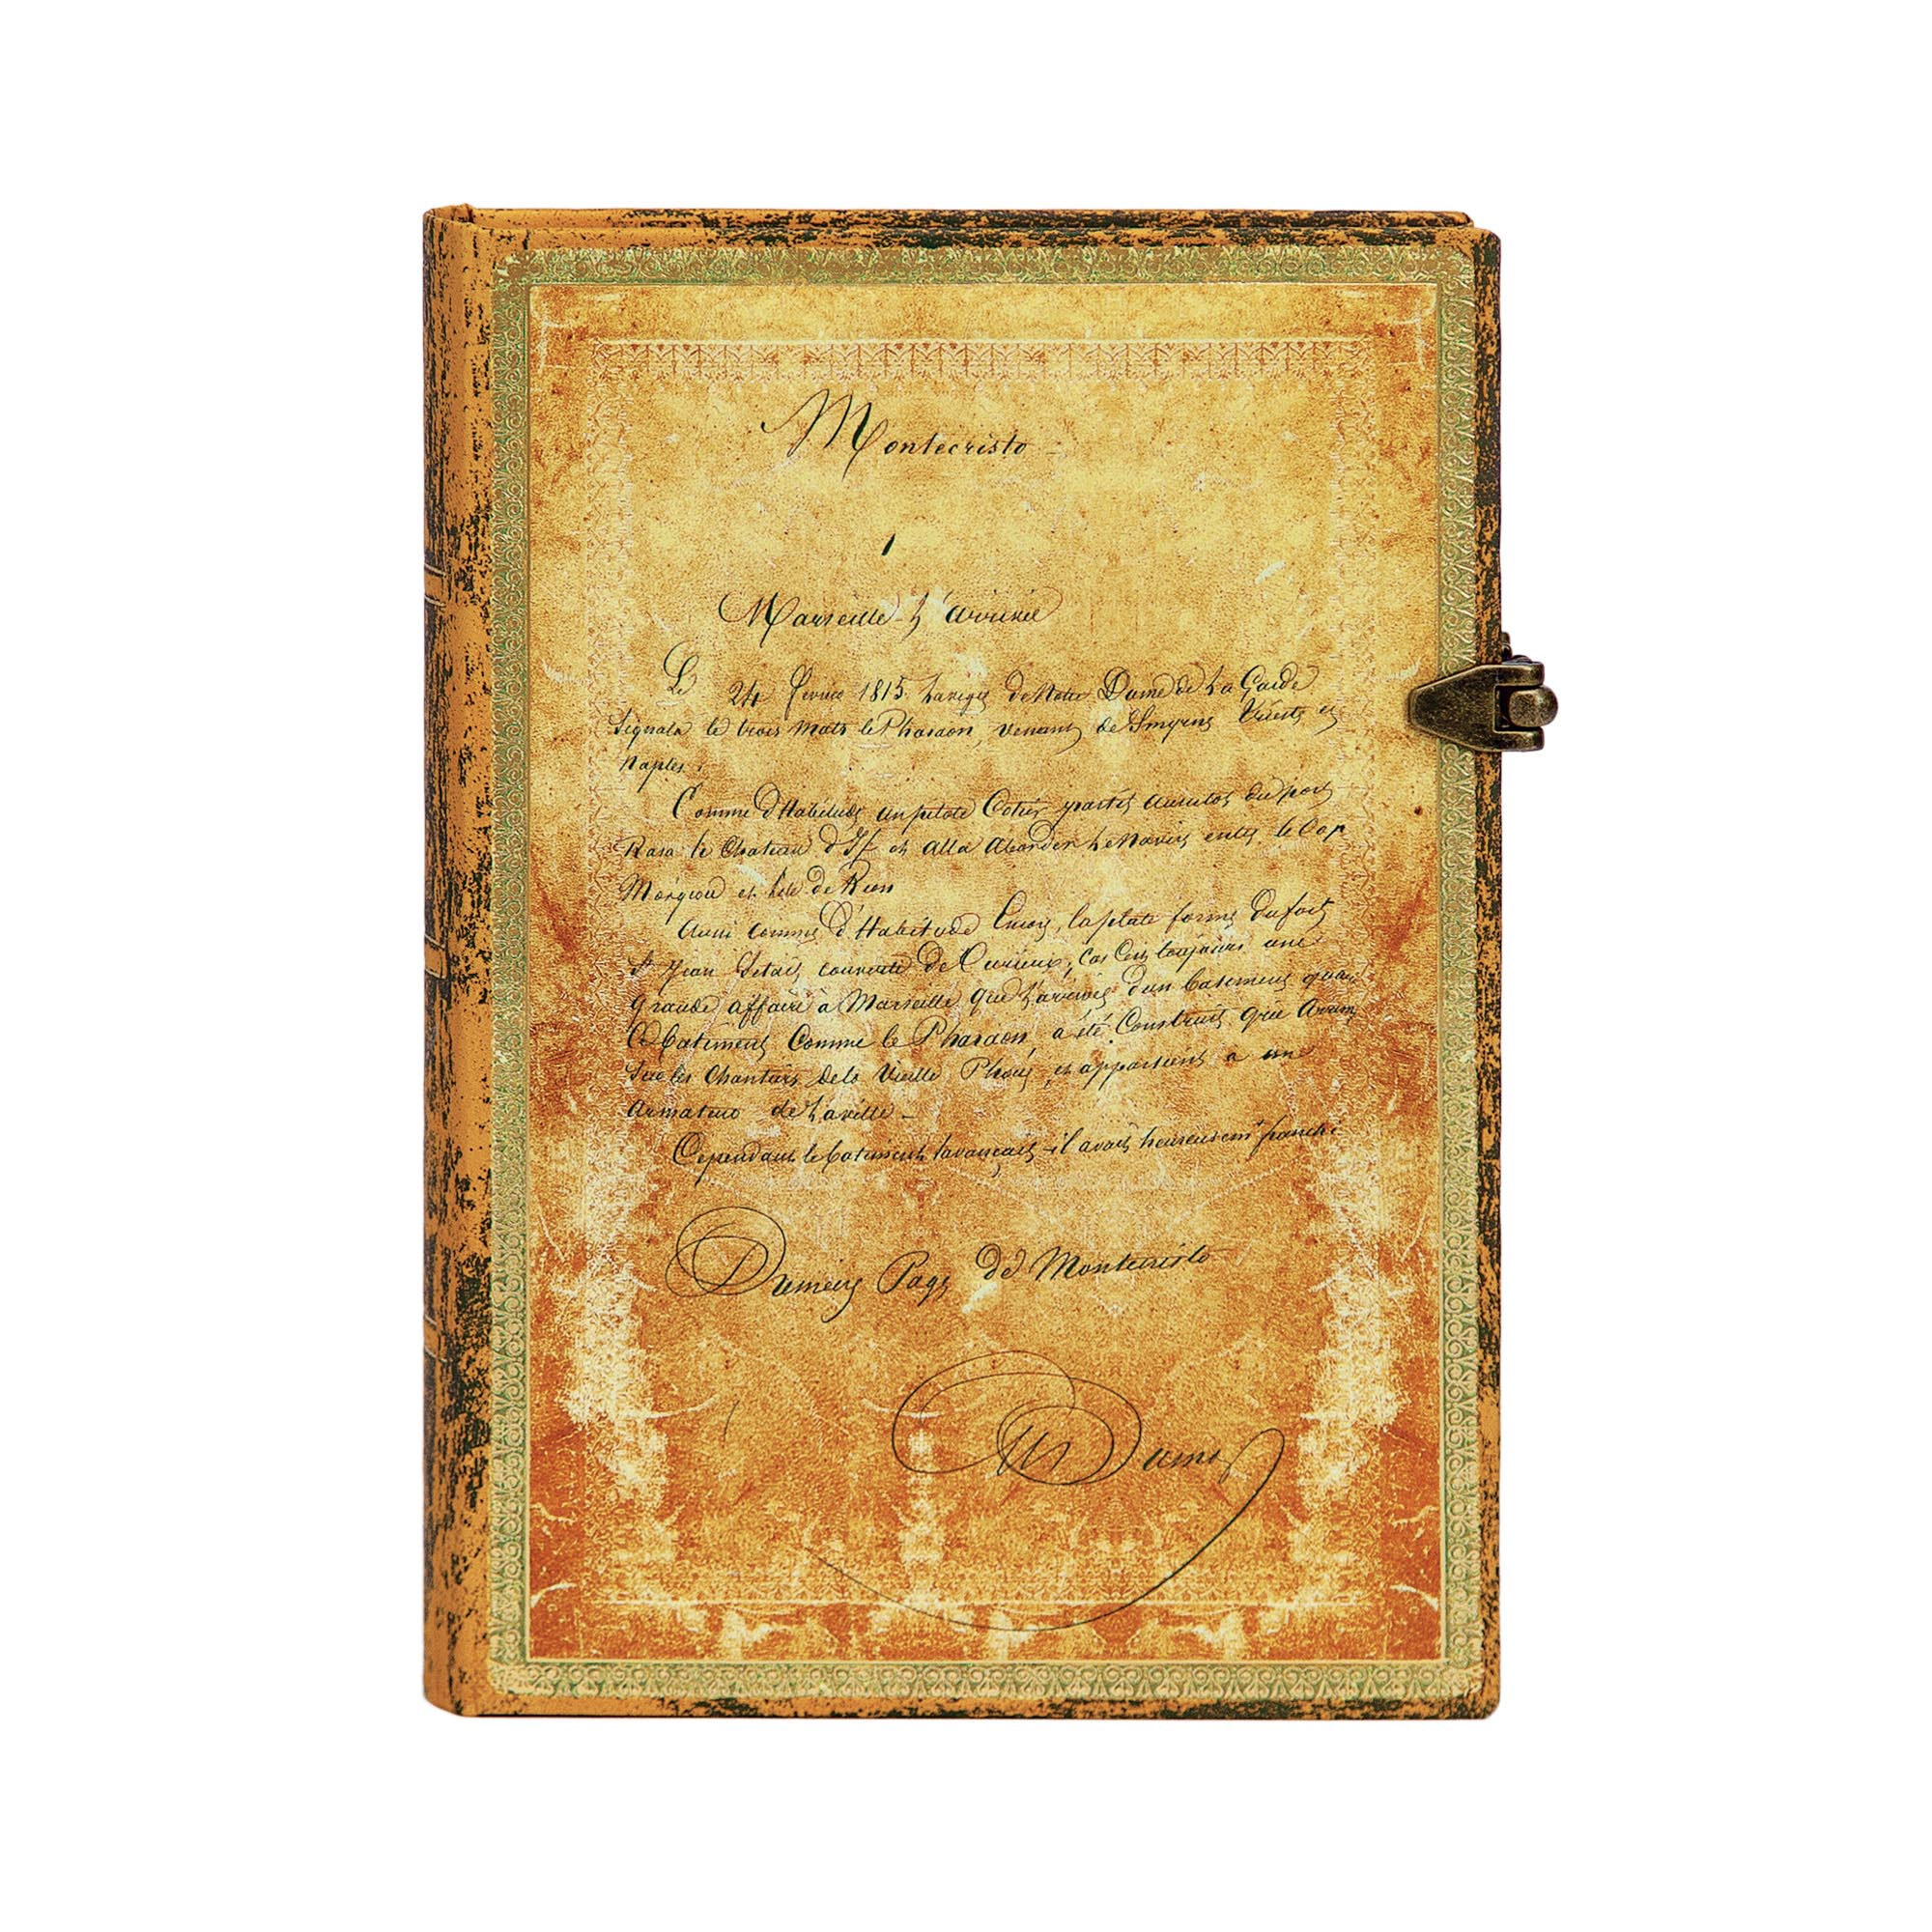 Montecristo —
1
Marseille - L'arrivée
Le 24 février 1815. la vigie de Notre Dame de La Garde
Signala le trois mats le Pharaon, venant de Smyrne Trieste et
Naples.
Comme d'Habitude un pilote Cotier partit aussitot du port
Rasa le Chateau d'If et alla aborder le Navire entre le Cap
Morgiou et l'ile de Rion
Aussi comme d'Habitude Encore, la plate forme du fort
St Jean s'etait couverte de Curieux, Car C'est toujours une
grande affaire à Marseille que L'arrivée d'un batiment quand
Ce batiment Comme le Pharaon, a été Construit gréé Arrimé
Sur les Chantiers de la Vieille Phocée, et appartient a un
armateur de La ville —
Cependant le batiment s'avançait - il avait heureusemt franchi
Derniere Page de Montecristo
Alx Dumas